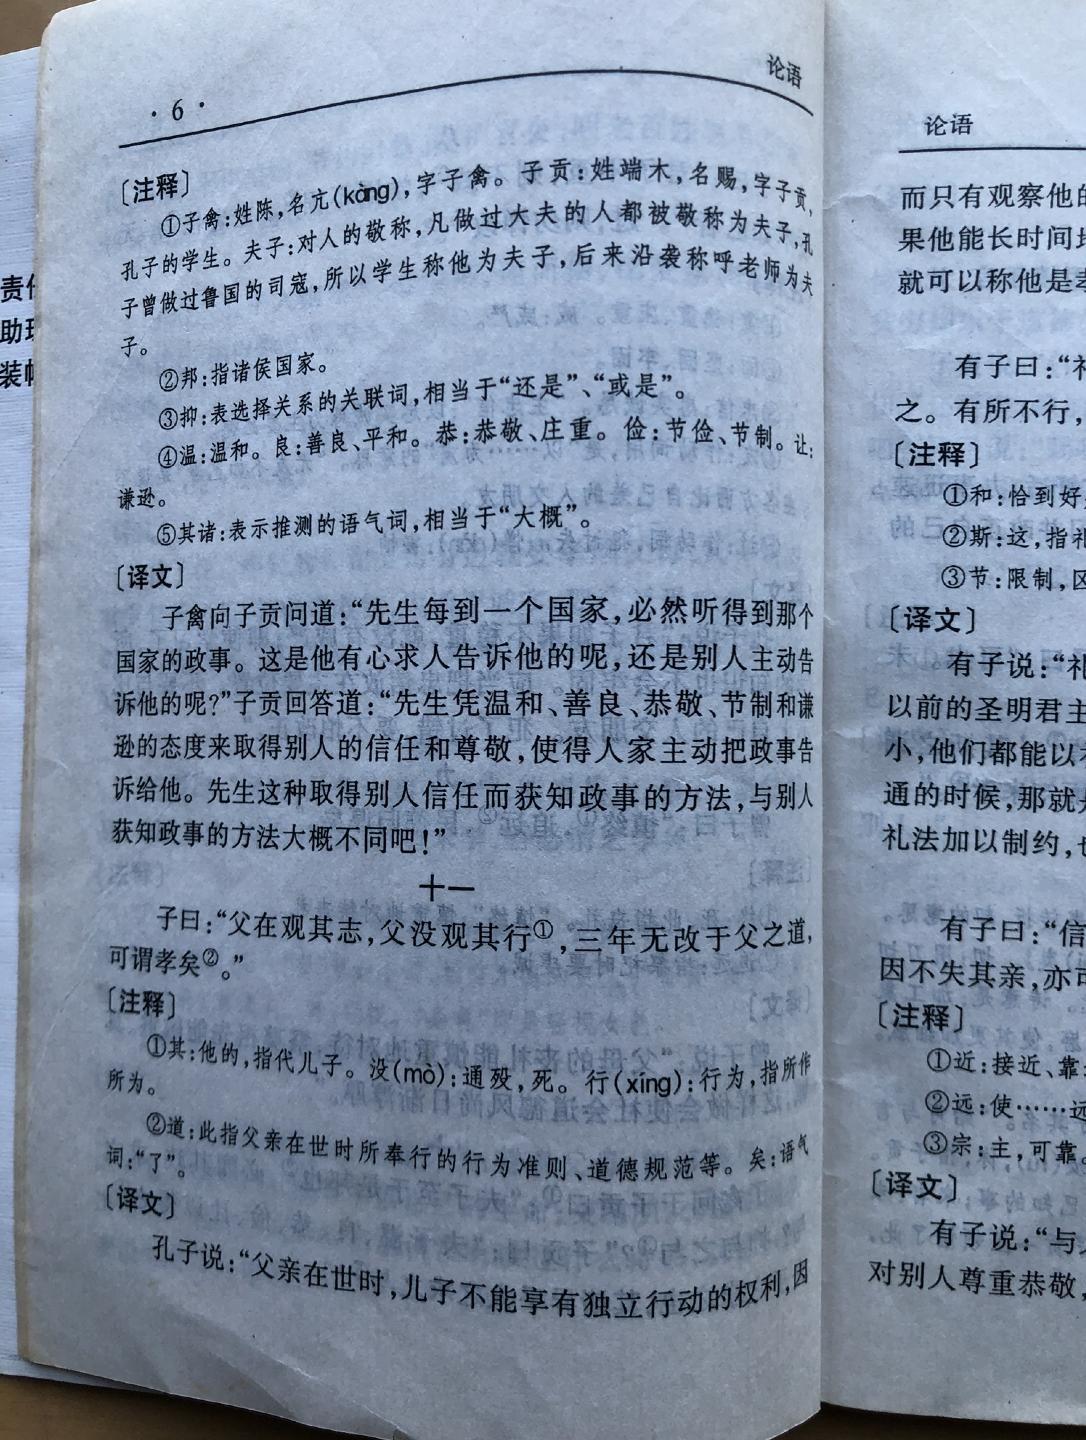 ·6·
论语
〔注释〕
①子禽:姓陈,名亢(kàng),字子禽。子贡:姓端木,名赐,字子贡,
孔子的学生。夫子:对人的敬称,凡做过大夫的人都被敬称为夫子,孔
子曾做过鲁国的司寇,所以学生称他为夫子,后来沿袭称呼老师为夫
子。
②邦:指诸侯国家。
③抑:表选择关系的关联词,相当于“还是”、“或是”。
④温:温和。良:善良、平和。恭:恭敬、庄重。俭:节俭、节制。让:
谦逊。
⑤其诸:表示推测的语气词,相当于“大概”。
〔译文〕
子禽向子贡问道:“先生每到一个国家,必然听得到那个
国家的政事。这是他有心求人告诉他的呢,还是别人主动告
诉他的呢?”子贡回答道:“先生凭温和、善良、恭敬、节制和谦
逊的态度来取得别人的信任和尊敬,使得人家主动把政事告
诉给他。先生这种取得别人信任而获知政事的方法,与别人
获知政事的方法大概不同吧!”
十一
子曰:“父在观其志,父没观其行①,三年无改于父之道,
可谓孝矣②。”
〔注释〕
①其:他的,指代儿子。没(mò):通殁,死。行(xíng):行为,指所作
所为。
②道:此指父亲在世时所奉行的行为准则、道德规范等。矣:语气
词:“了”。
〔译文〕
孔子说:“父亲在世时,儿子不能享有独立行动的权利,因
论语
而只有观察他的
果他能长时间地
就可以称他是孝
有子曰:“礼
之。有所不行,
〔注释〕
①和:恰到好
②斯:这,指礼
③节:限制,区
〔译文〕
有子说:“礼
以前的圣明君主
小,他们都能以
通的时候,那就
礼法加以制约,也
有子曰:“信
因不失其亲,亦可
〔注释〕
①近:接近、靠
②远:使……远
③宗:主,可靠。
〔译文〕
有子说:“与
对别人尊重恭敬,
责任
助理
装帧